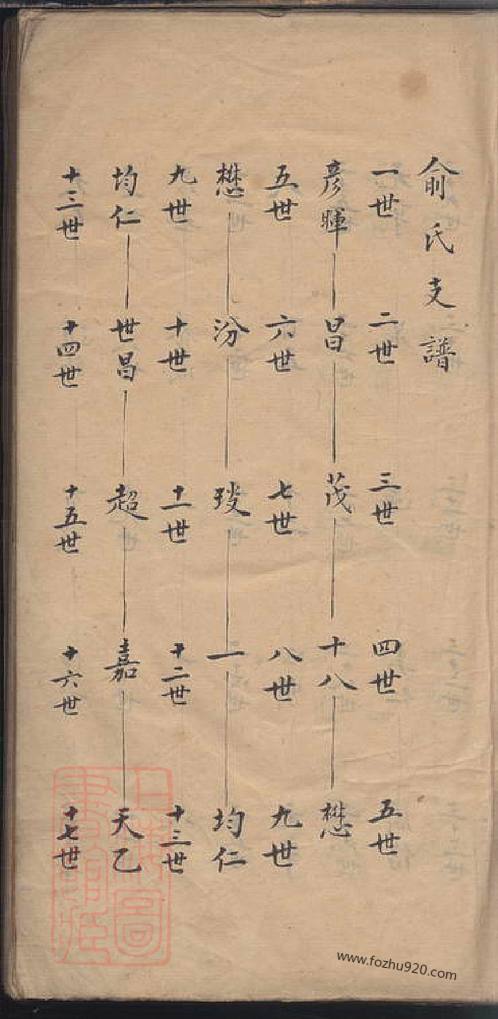 俞氏支譜
一世 二世 三世 四世 五世
彦暉 昌 茂 十八 懋
五世 六世 七世 八世 九世
懋 汾 一 均仁
九世 十世 十一世 十二世 十三世
均仁 世昌 超 嘉 天乙
十三世 十四世 十五世 十六世 十七世
www.fozhu920.com